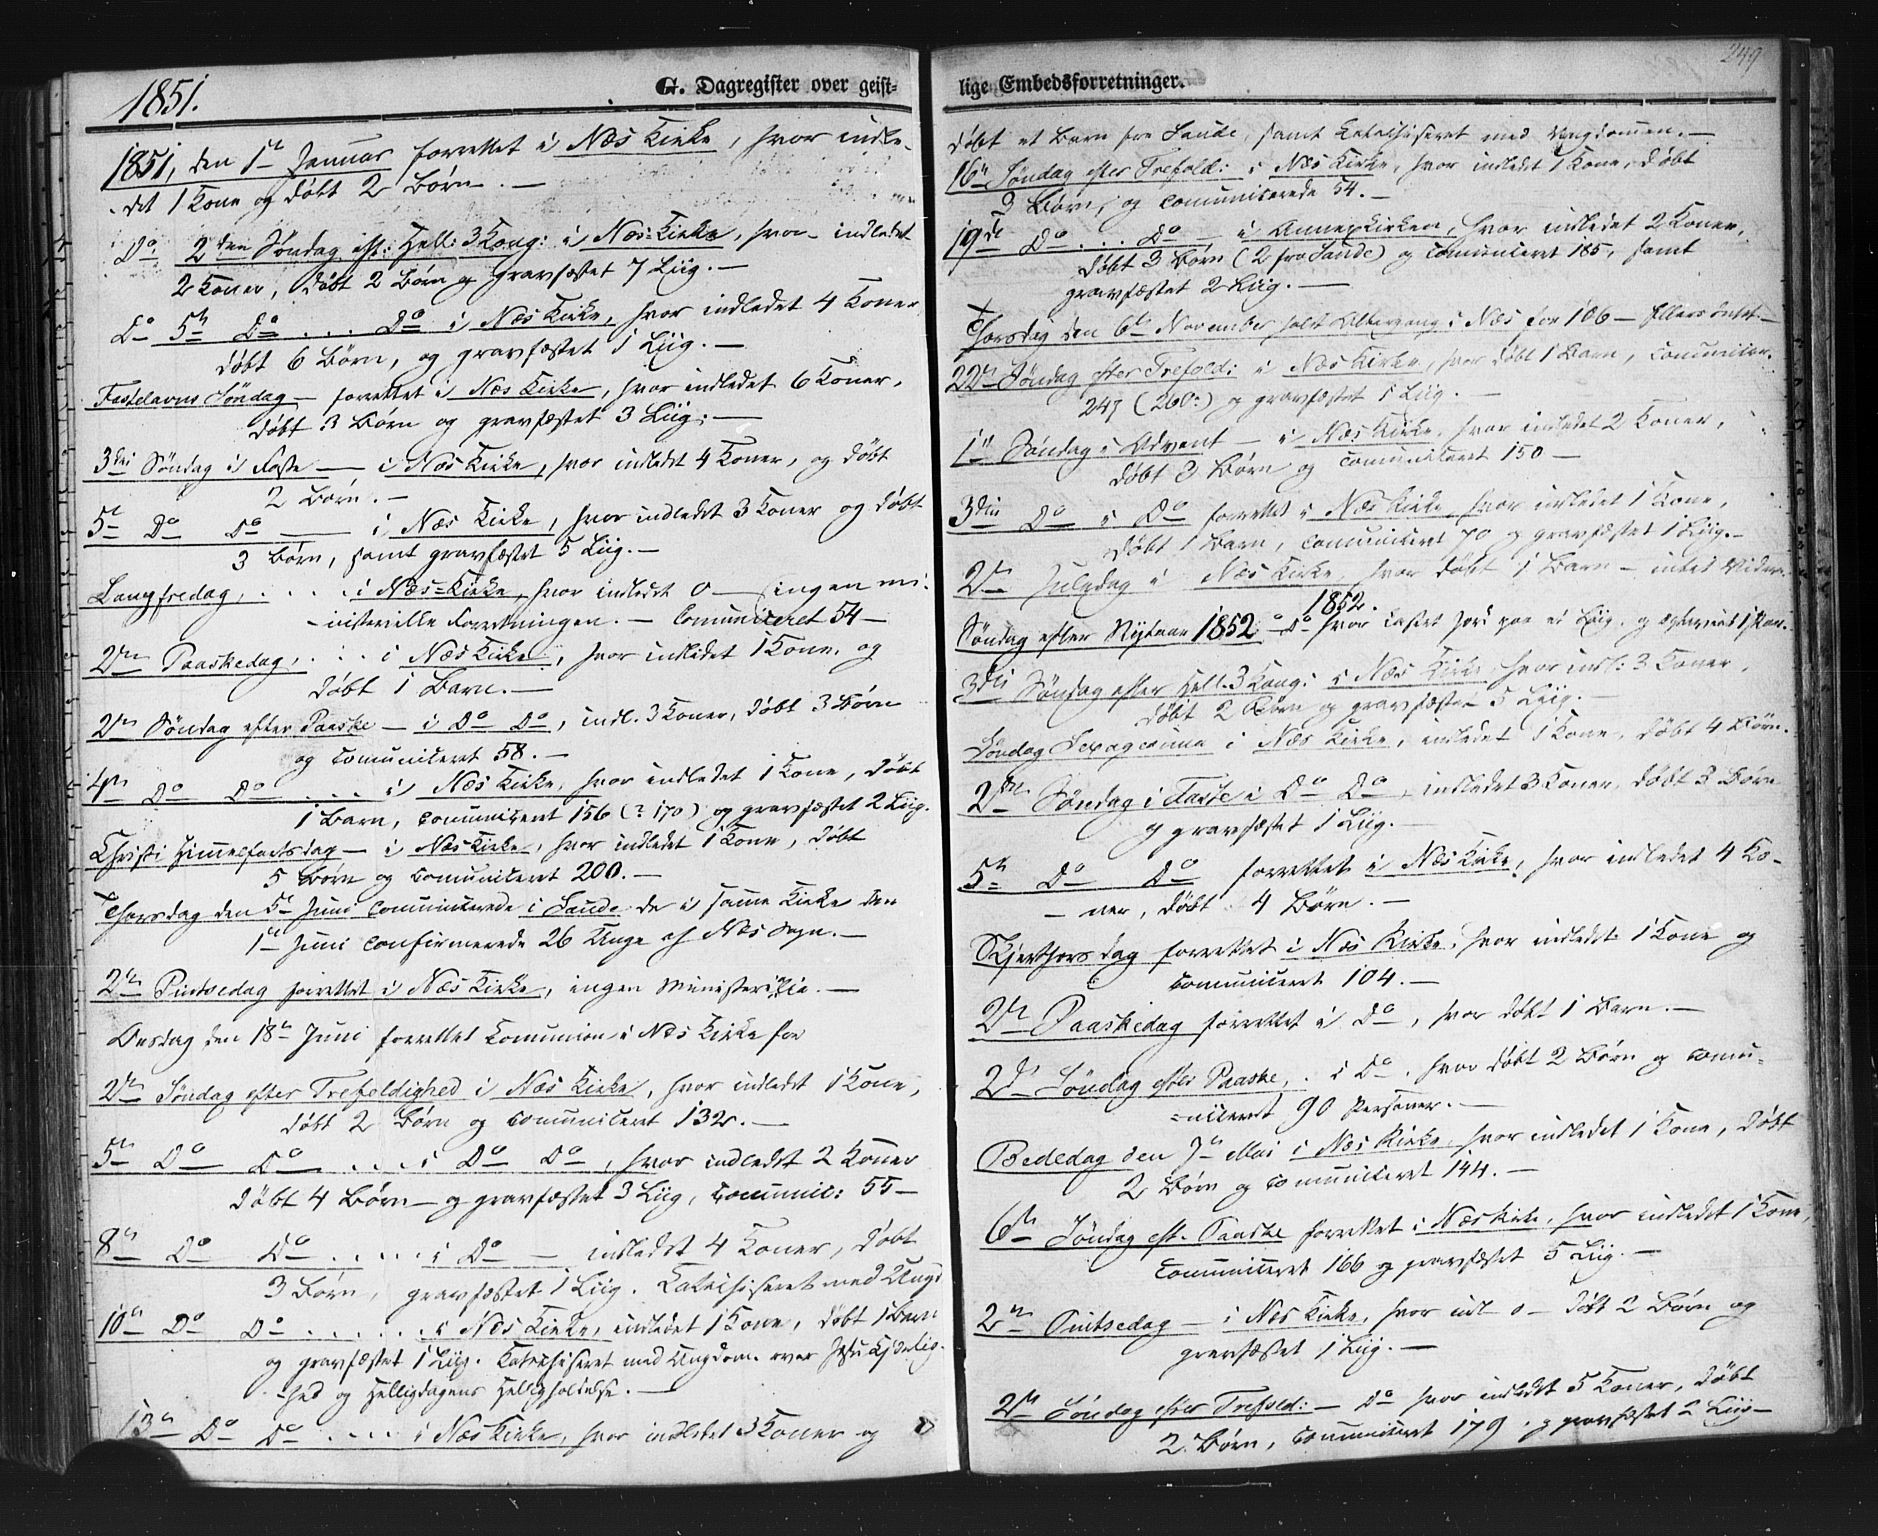 1851.
G. Dagregister over geist-
1851, den 1te Januar forrettet i Næs Kirke, hvor indle-
det 1 Kone og døbt 2 Børn. —
Do 2den Søndag eft: Hell: 3 Kong: i Næs=Kirke, hvor indledet
2 Koner, døbt 2 Børn og gravfæstet 7 Liig. —
Do 5te Do . . . Do i Næs Kirke, hvor indledet 4 Koner
døbt 6 Børn, og gravfæstet 1 Liig. —
Fastelavns Søndag — forrettet i Næs Kirke, hvor indledet 6 Koner,
døbt 3 Børn og gravfæstet 3 Liig. —
3die Søndag i Faste — i Næs Kirke, hvor indledt 4 Koner, og døbt
2 Børn. —
5te Do Do — i Næs Kirke, hvor indledet 3 Koner og døbt
3 Børn, samt gravfæstet 5 Liig. —
Langfredag, . . . . i Næs=Kirke, hvor indledt 0 — ingen mi-
-nisterielle Forretningen. — Comuniceret 54 —
2den Paaskedag, . . . i Næs Kirke, hvor indledet 1 Kone, og
døbt 1 Barn. —
2den Søndag efter Paaske — i Do Do, indl. 3 Koner, døbt 3 Børn
og Comuniceret 58. —
4de Do Do . . . i Næs Kirke, hvor indledet 1 Kone, døbt
1 Barn, Comuniceret 156 (? 170) og gravfæstet 2 Liig.
Christi Himmelfartsdag — i Næs Kirke, hvor indledet 1 Kone, døbt
5 Børn og Comuniceret 200. —
Thorsdag den 5te Juni Comunicerede i Sande de i samme Kirke den
1ste Juni Confirmerede 26 Unge af Næs Sogn. —
2den Pintsedag forrettet i Næs Kirke, ingen Ministerialia. —
Onsdag den 18de Juni forrettet Comunion i Næs Kirke for
2den Søndag efter Trefoldighed i Næs Kirke, hvor indledet 1 Kone,
døbt 2 Børn og Comuniceret 132. —
5te Do Do . . . i Do Do, hvor indledt 2 Koner
døbt 4 Børn — og gravfæstet 3 Liig, Comunic: 55 —
8de Do Do . . . . i Do — indledet 4 Koner, døbt
3 Børn, gravfæstet 1 Liig. Catechiseret med Ungd
10de Do Do . . . . . i Næs Kirke, indledet 1 Kone, døbt 1 Barn
og gravfæstet 1 Liig. Catechiseret med Ungdom. over Jesu Kjærlig-
-hed og Helligdagens Helligholdelse. —
13de Do Do . . . . i Næs Kirke, hvor indledet 3 Koner og
249
lige Embedsforretninger.
døbt et Barn fra Sande, samt Catechiseret med Ungdommen. —
16de Søndag efter Trefold: i Næs Kirke, hvor indledet 1 Kone, døbt
3 Børn, og Comunicerede 54. —
19de Do . . . Do — i Annexkirken, hvor indledet 2 Koner,
døbt 3 Børn (2 fra Sande) og Comuniceret 185, samt
gravfæstet 2 Liig. —
Thorsdag den 6te November holdt Altergang i Næs for 106 — Ellers Intet —
22de Søndag efter Trefold: i Næs Kirke, hvor døbt 1 Barn, Comunicer.
247 (260?) og gravfæstet 1 Liig. —
1ste Søndag i Advent — i Næs Kirke, hvor indledet 2 Koner,
døbt 3 Børn og Comuniceret 150 —
3die Do i Do forrettet i Næs Kirke, hvor indledet 1 Kone,
døbt 1 Barn, Comuniceret 70 og gravfæstet 1 Liig. —
2den Juledag i Næs Kirke hvor døbt 1 Barn — intet Videre.
1852.
Søndag efter Nytaar 1852 — Do hvor Castet Jord paa et Liig, og
3die Søndag efter Hell. 3 Kong: i Næs Kirke, hvor indl: 3 Koner,
døbt 2 Børn og gravfæstet 5 Liig. —
Søndag Sexagesima i Næs Kirke, indledet 1 Kone, døbt 4 Børn.
2den Søndag i Faste i Do Do, indledet 3 Koner, døbt 3 Børn
og gravfæstet 1 Liig. —
5te Do Do forrettet i Næs Kirke, hvor indledet 4 Ko-
- ner, døbt 4 Børn. —
Skjerthorsdag forrettet i Næs Kirke, hvor indledet 1 Kone og
Comuniceret 104. —
2den Paaskedag forrettet i Do, hvor døbt 1 Barn. —
2den Søndag efter Paaske, . i Do, hvor døbt 2 Børn og Comu-
=niceret 90 Personer. —
Bededag den 7de Mai i Næs Kirke, hvor indledet 1 Kone, døbt
2 Børn og Comuniceret 144. —
6te Søndag eft. Paaske forrettet i Næs Kirke, hvor indledet 1 Kone,
Comuniceret 166 og gravfæstet 5 Liig. —
2den Pintsedag — i Næs Kirke, hvor indl 0 — døbt 2 Børn og
gravfæstet 1 Liig. —
2den Søndag efter Trefold: — Do hvor indledet 5 Koner, døbt
2 Børn, Comuniceret 179, og gravfæstet 2 Liig —